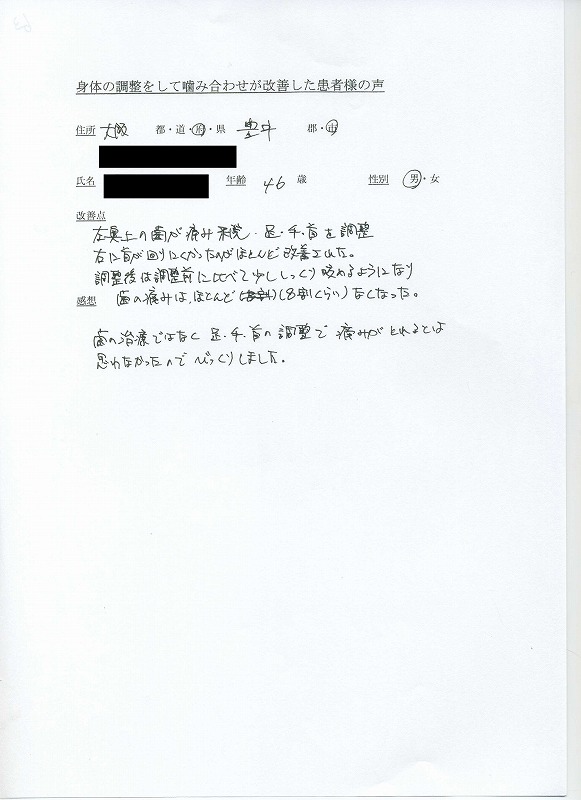 身体の調整をして噛み合わせが改善した患者様の声
住所 大阪 都・道・府・県 豊中 郡・市
氏名 年齢 46 歳 性別 男・女
改善点
左奥上の歯が痛み来院。足・手・首を調整
右に首が回りにくかったのがほとんど改善された。
調整後は調整前に比べて少ししっくり咬めるようになり
感想 歯の痛みは、ほとんど(8割くらい)なくなった。
歯の治療ではなく足・手・首の調整で痛みがとれるとは
思わなかったのでびっくりしました。